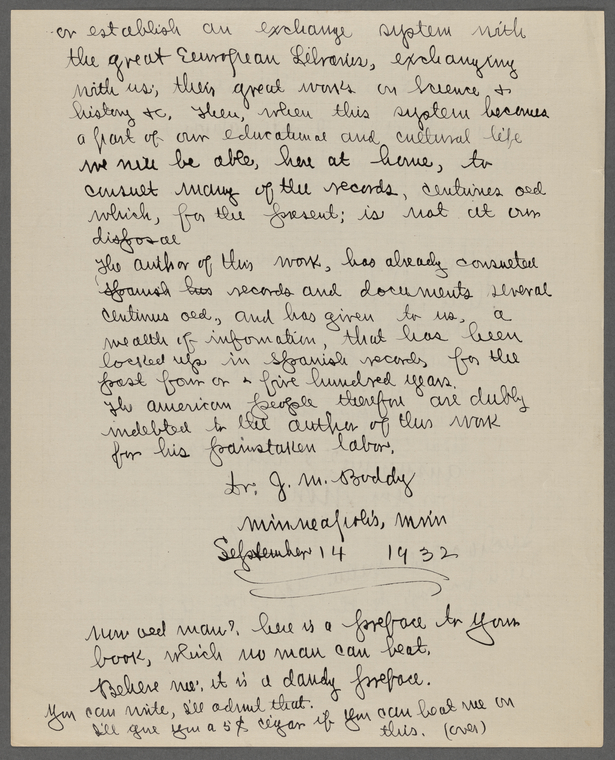 or establish an exchange system with
the great Eeuropean Libraries, exchanging
with us, their great works on Science, +
history &c, Then, when this system becomes
a part of our educational and cultural life
we will be able, here at home, to
consult many of the records, centuries old
which, for the present; is not at our
disposal
The author of this work, has already consulted
Spanish his records and documents several
centuries old, and has given to us, a
wealth of information, that has been
locked up in Spanish records, for the
past four or five hundred years.
The american people therefore are dubly
indebted to the author of this work
for his painstaken labor.
Dr. J. M. Boddy
Minneapolis, Minn
September 14 1932
Now old man? here is a preface to your
book, which no man can beat.
Believe me, it is a dandy preface.
You can write, I'll admit that.
I'll give you a 5¢ cigar if you can beat me on
this. (over)